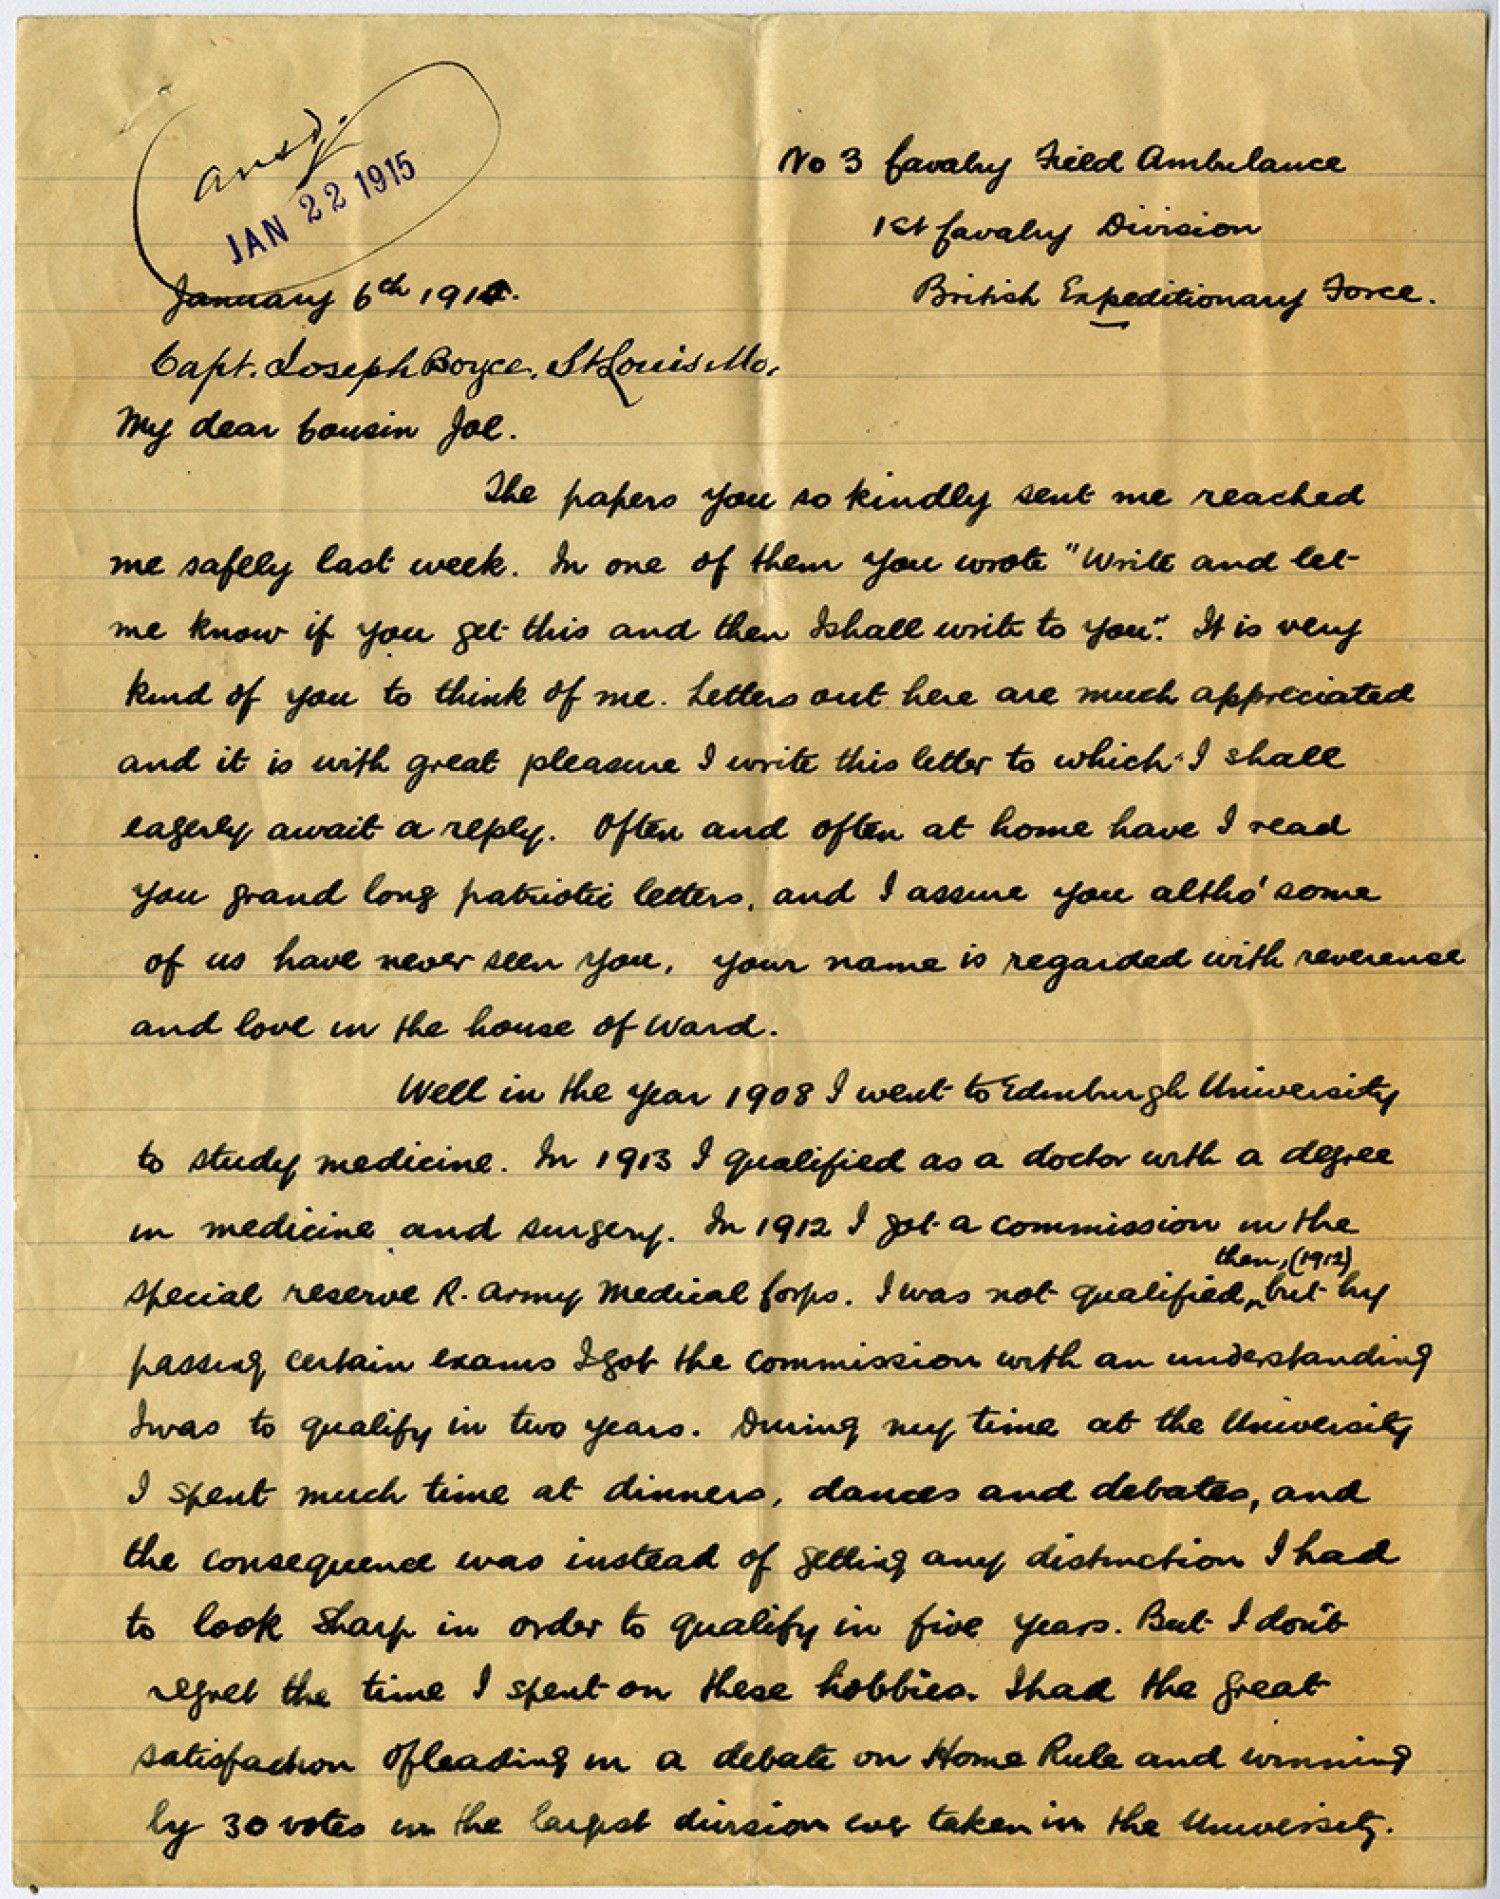 ansd.
JAN 22 1915
No 3 Cavalry Field Ambulance
1st Cavalry Division
British Expeditionary Force.
January 6th
Capt. Joseph Boyce, St Louis Mo,
My dear Cousin Joe.
The papers you so kindly sent me reached
me safely last week. In one of them you wrote "Write and let
me know if you get this and then I shall write to you". It is very
kind of you to think of me. Letters out here are much appreciated
and it is with great pleasure I write this letter to which I shall
eagerly await a reply. Often and often at home have I read
you grand long patriotic letters, and I assure you altho' some
of us have never seen you, your name is regarded with reverense
and love in the house of Ward.
Well in the year 1908 I went to Edinburgh University
to study medicine. In 1913 I qualified as a doctor with a degree
in medicine and surgery. In 1912 I got a commission in the
then, (1912)
special reserve R. Army Medical Corps. I was not qualified, but by
passing certain exams I got the commission with an understanding
I was to qualify in two years. During my time at the University
I spent much time at dinners, dances and debates, and
the consequence was instead of getting any distinction I had
to look sharp in order to qualify in five years. But I don't
regret the time I spent on these hobbies. I had the great
satisfaction of leading in a debate on Home Rule and winning
by 30 votes in the largest division ever taken in the University.